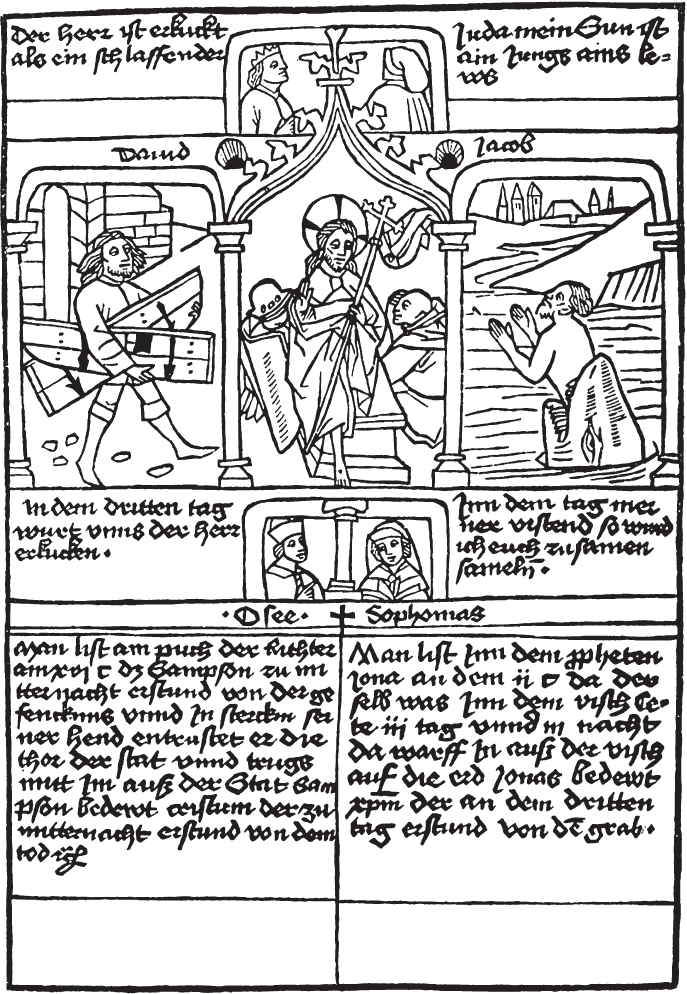 Der herr ist erkuckt
als ein schlaffender
Juda mein Sun ist
ain Jungs ains le=
ws
Dauid
Jacob
In dem dritten tag
wurt vnns der herr
erkucken.
Inn dem tag mei
ner vistend so wird
ich euch zu samen
sameln.
·Osee· Sophonias
Man list am puch der Richter
am xvj c dz Sampson zu mi
tternacht erstund von der ge
fencknus vnnd In stercken sei
ner hend entrustet er die
thor der stat vnnd trugs
mitt Im auß der Stat Sam
pson bedewt cristum der zu
mitternacht erstund von dem
tod
Man list Inn dem ppheten
Jona an dem ii c da der
selb was Inn dem visch Ce=
te iii tag vnnd iii nacht
da warff In auß der visch
auf die erd Jonas bedewt
xpm̄ der an dem dritten
tag erstund von dē grab.